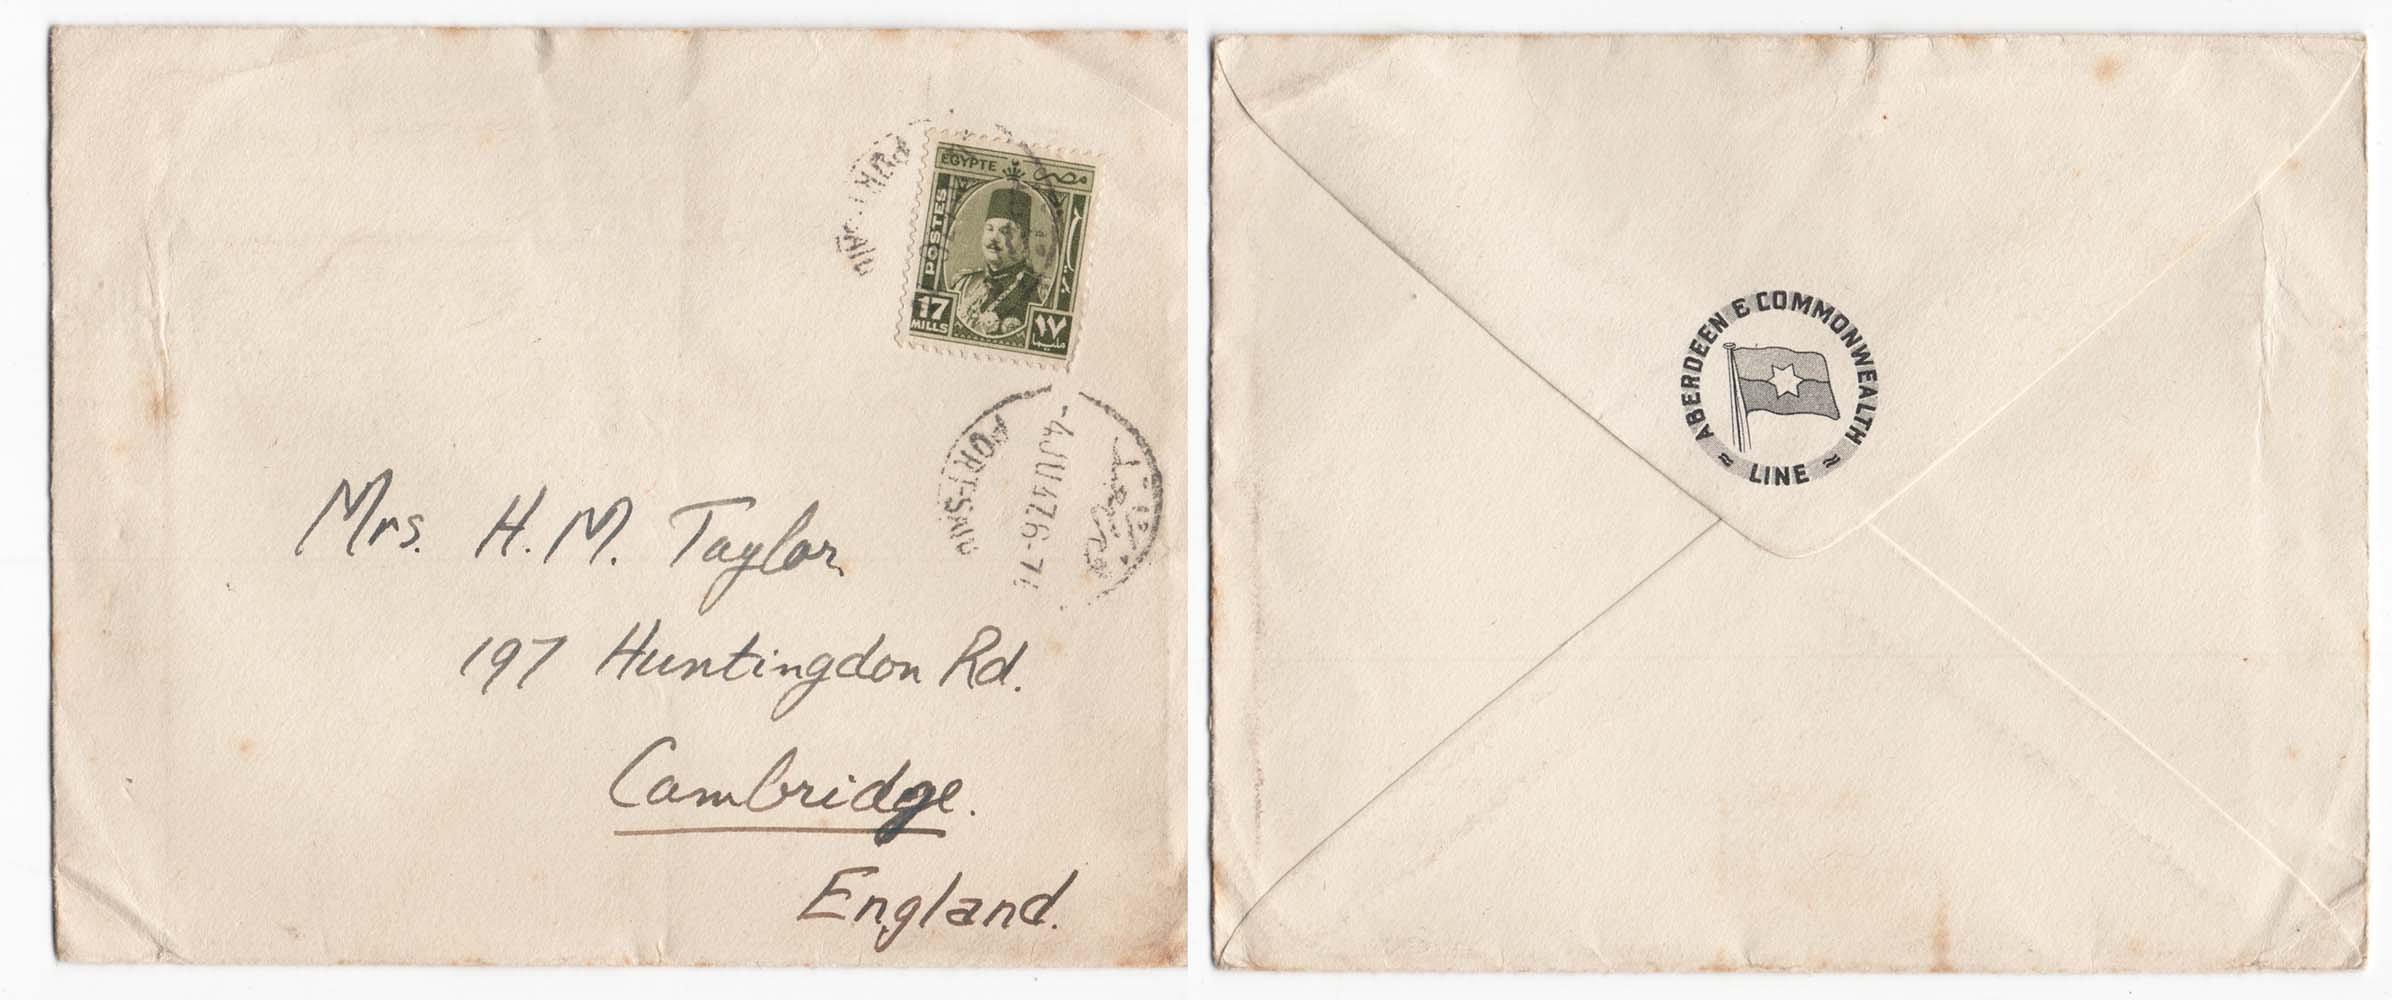 EGYPTE مصر
POSTES
17 MILLS ١٧ مليما
PORT-SAID
-4JU47.6-7
Mrs. H. M. Taylor
197 Huntingdon Rd.
Cambridge.
England.
ABERDEEN & COMMONWEALTH
≈ LINE ≈